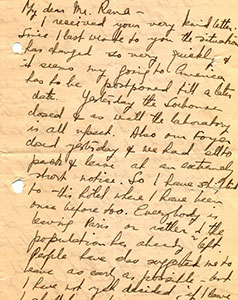 My dear Mr. Rand -
I received your very kind letter.
Since I last wrote to you the situation
has changed so very quickly &
it seems my going to America
has to be postponed till a later
date. Yesterday the Sorbonne
closed & as well the laboratory
is all upset. Also our Foyer
closed yesterday & we had to
pack & leave at an extremely
short notice. So I have
to this hotel where I have been
once before too. Everybody is
leaving Paris or rather & the
population has already left
People have also suggested me to
leave as early as possible and
I have not yet decided if I leave